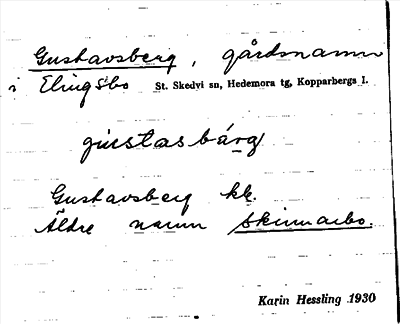 Gustavsberg, gårdsnamn
i Elingsbo St. Skedvi sn, Hedemora tg, Kopparbergs l.
gustasbárg
Gustavsberg kk.
Äldre namn Skinnarbo.
Karin Hessling 1930